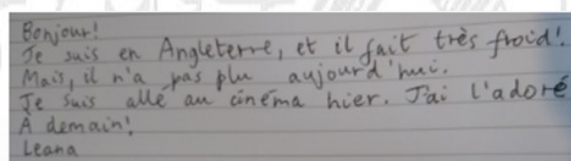 Bonjour!
Je suis en Angleterre, et il fait très froid!
Mais, il n'a pas plu aujourd'hui.
Je suis allé au cinéma hier. J'ai l'adoré
À demain!
Leana